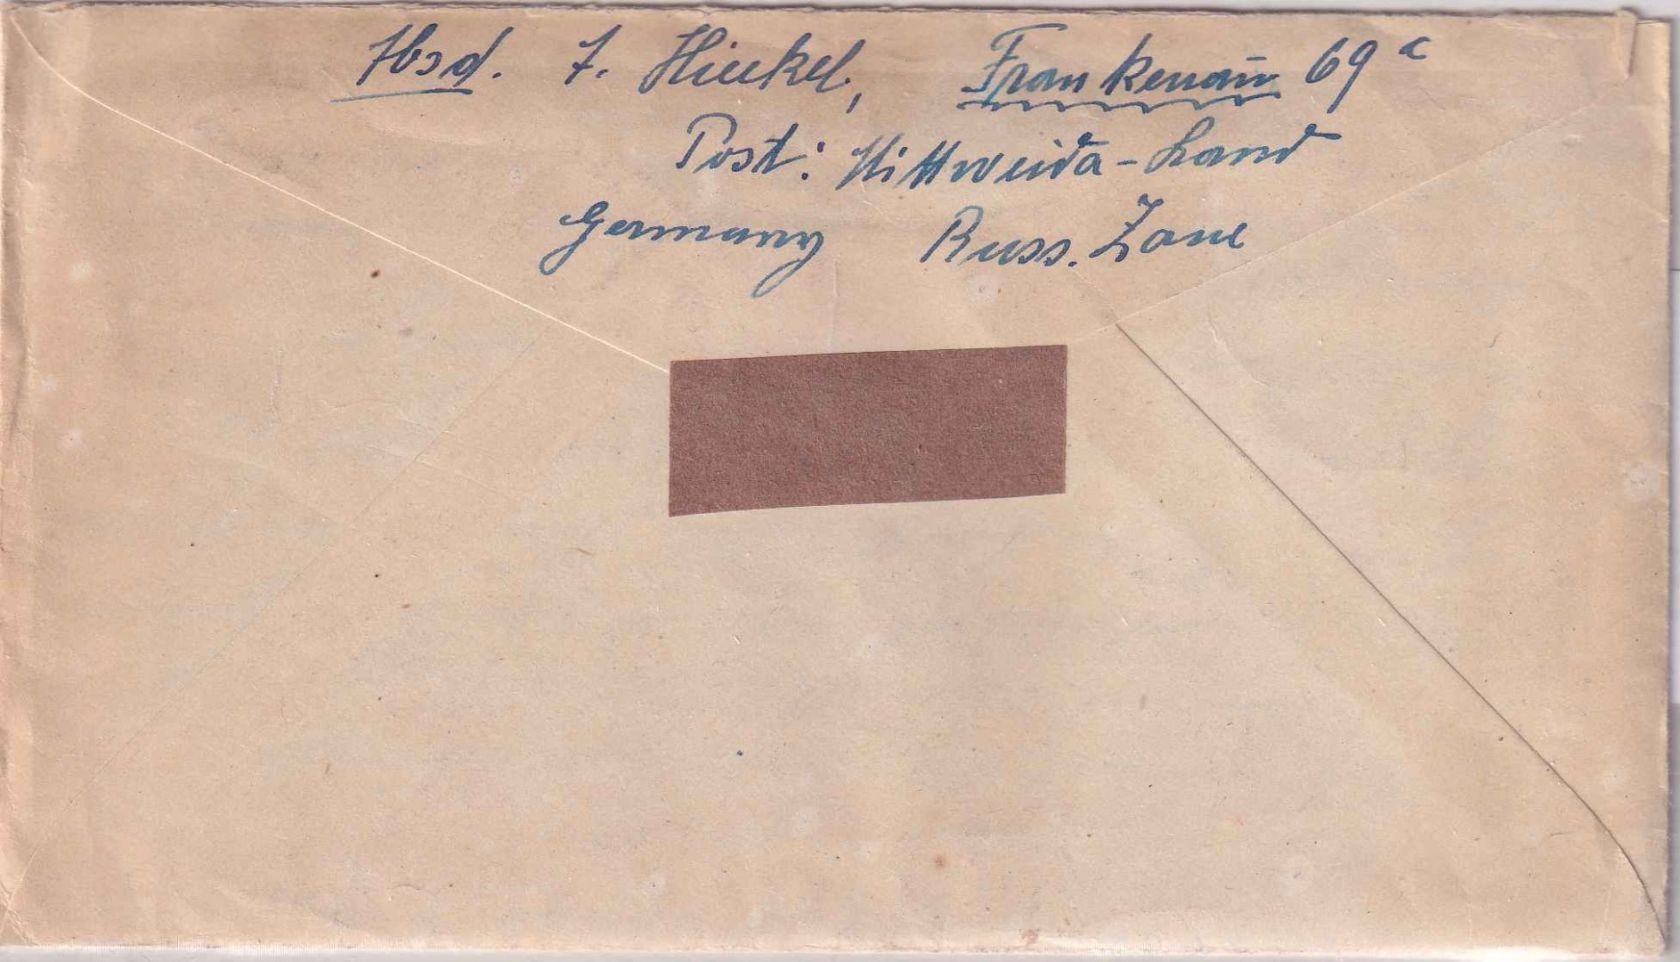 Absd. F. Hieckel, Frankenau 69 c
Post: Mittweida-Land
Germany Russ. Zone